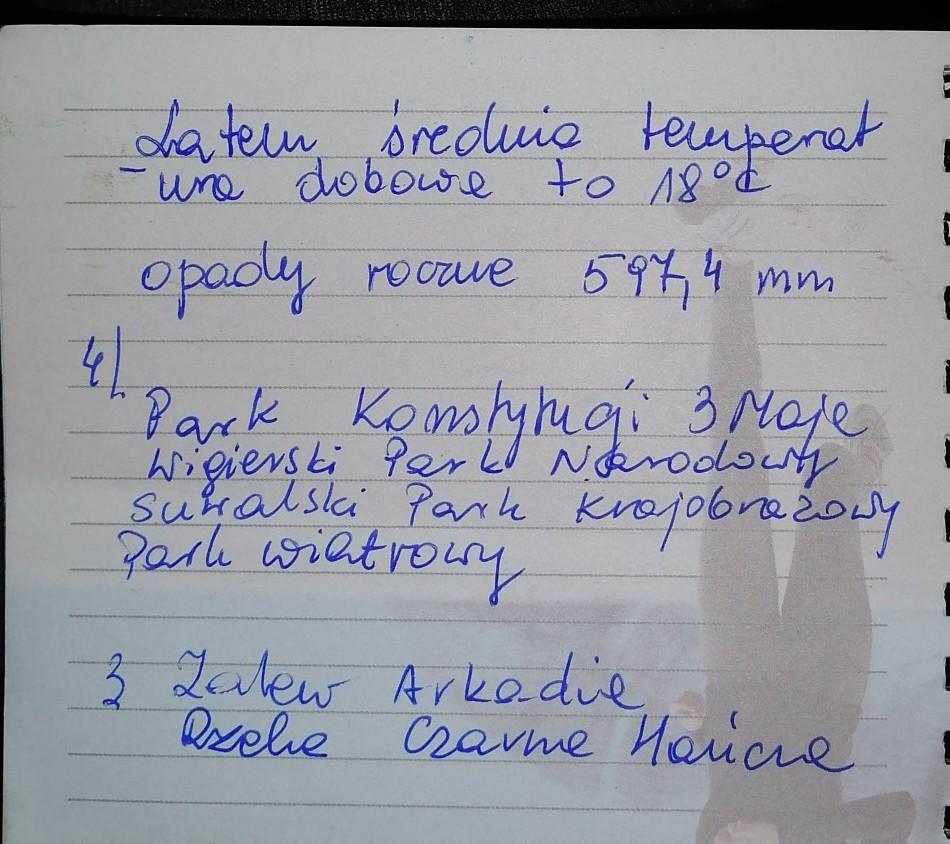 Latem średnia temperat
-ura dobowa to 18°C
opady roczne 597,4 mm
4/
Park Konstytucji 3 Maja
Wigierski Park Narodowy
Suwalski Park Krajobrazowy
Park wiatrowy
3 Zalew Arkadia
Rzeka Czarna Hańcza